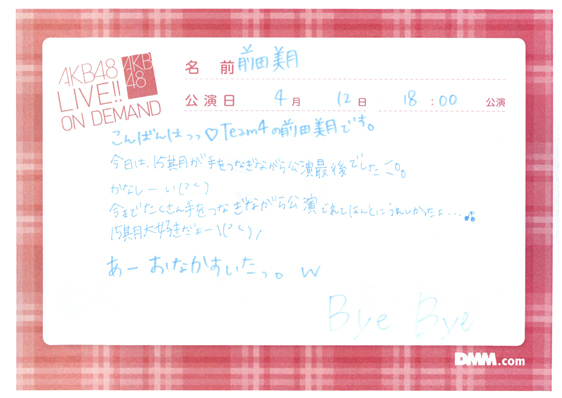 AKB48
LIVE!!
ON DEMAND
AKB
48
名 前 前田美月
公演日 4月 12日 18:00 公演
こんばんはっっ♡Team4の前田美月です。
今日は、15期が手をつなぎながら公演最後でした
かなしーい
今までたくさん手をつなぎながら公演でれてほんとにうれしかったよ...♫
15期大好きだよー
あーおなかすいたっ。w
Bye Bye
DMM.com